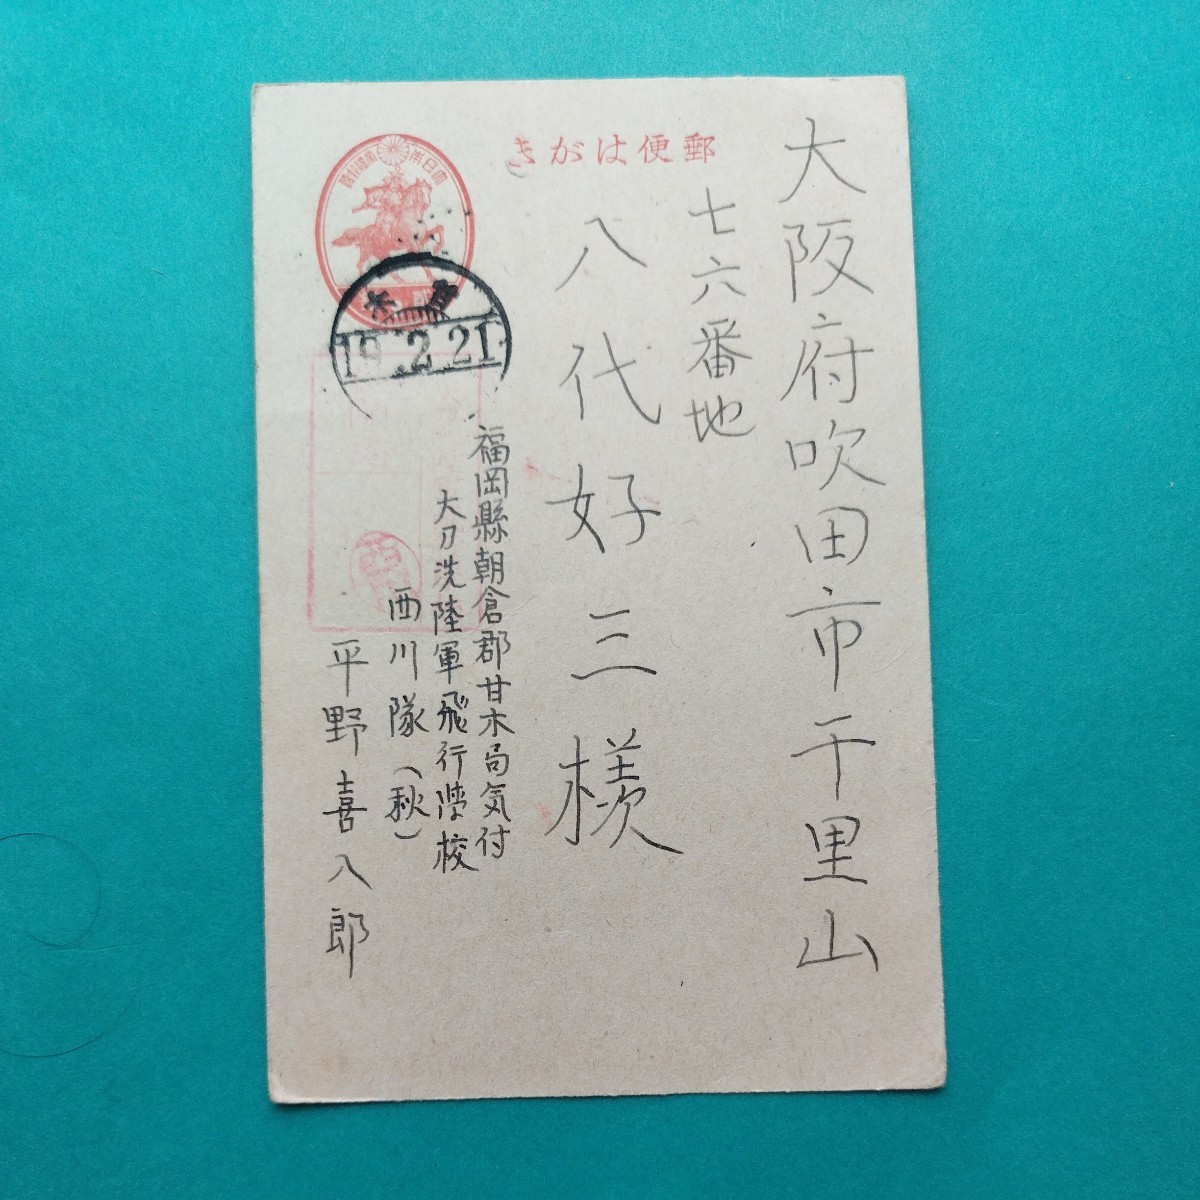 郵便はがき
大日本帝國郵便
19.2.21
大阪府吹田市千里山
七六番地
八代好三様
福岡縣朝倉郡甘木局気付
大刀洗陸軍飛行學校
西川隊（秋）
平野喜八郎